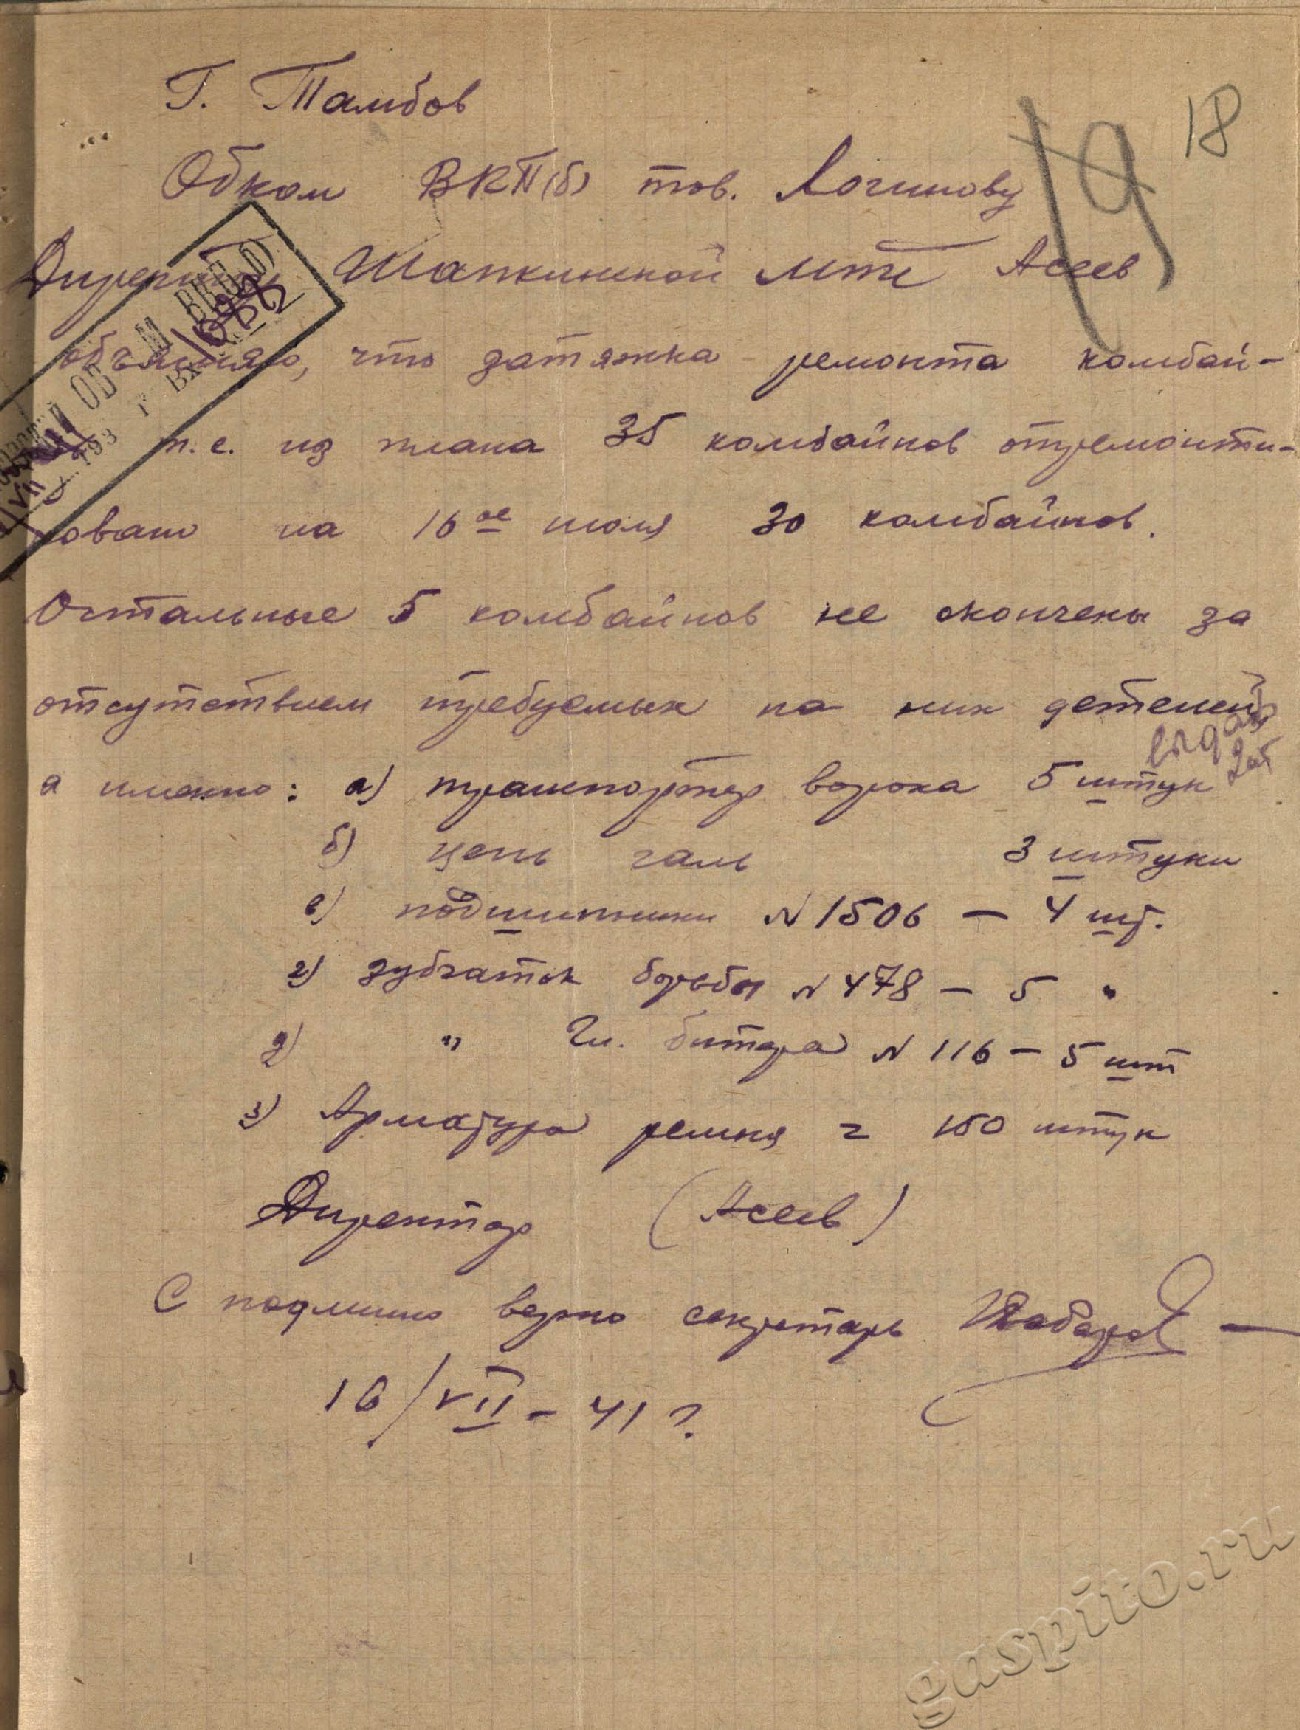 18
19
Г. Тамбов
Обком ВКП(б) тов. Логинову
Директор Шапкинской МТС Асеев
объясняю, что затяжка ремонта комбай-
т.е. из плана 35 комбайнов отремонти-
ровано на 16ое июля 30 комбайнов.
Остальные 5 комбайнов не окончены за
отсутствием требуемых на них деталей
а именно: а) транспортер вороха 5 штук
б) цепь галь 3 штуки
в) подшипники N 1506 – 4 шт.
г) зубчаток борьбы N 478 – 5 "
д) " Гл. битера N 116 – 5 шт
з) Арматура ремня = 150 штук
Директор (Асеев)
С подлинно верно секретарь
16/VII – 41 г.
gaspito.ru